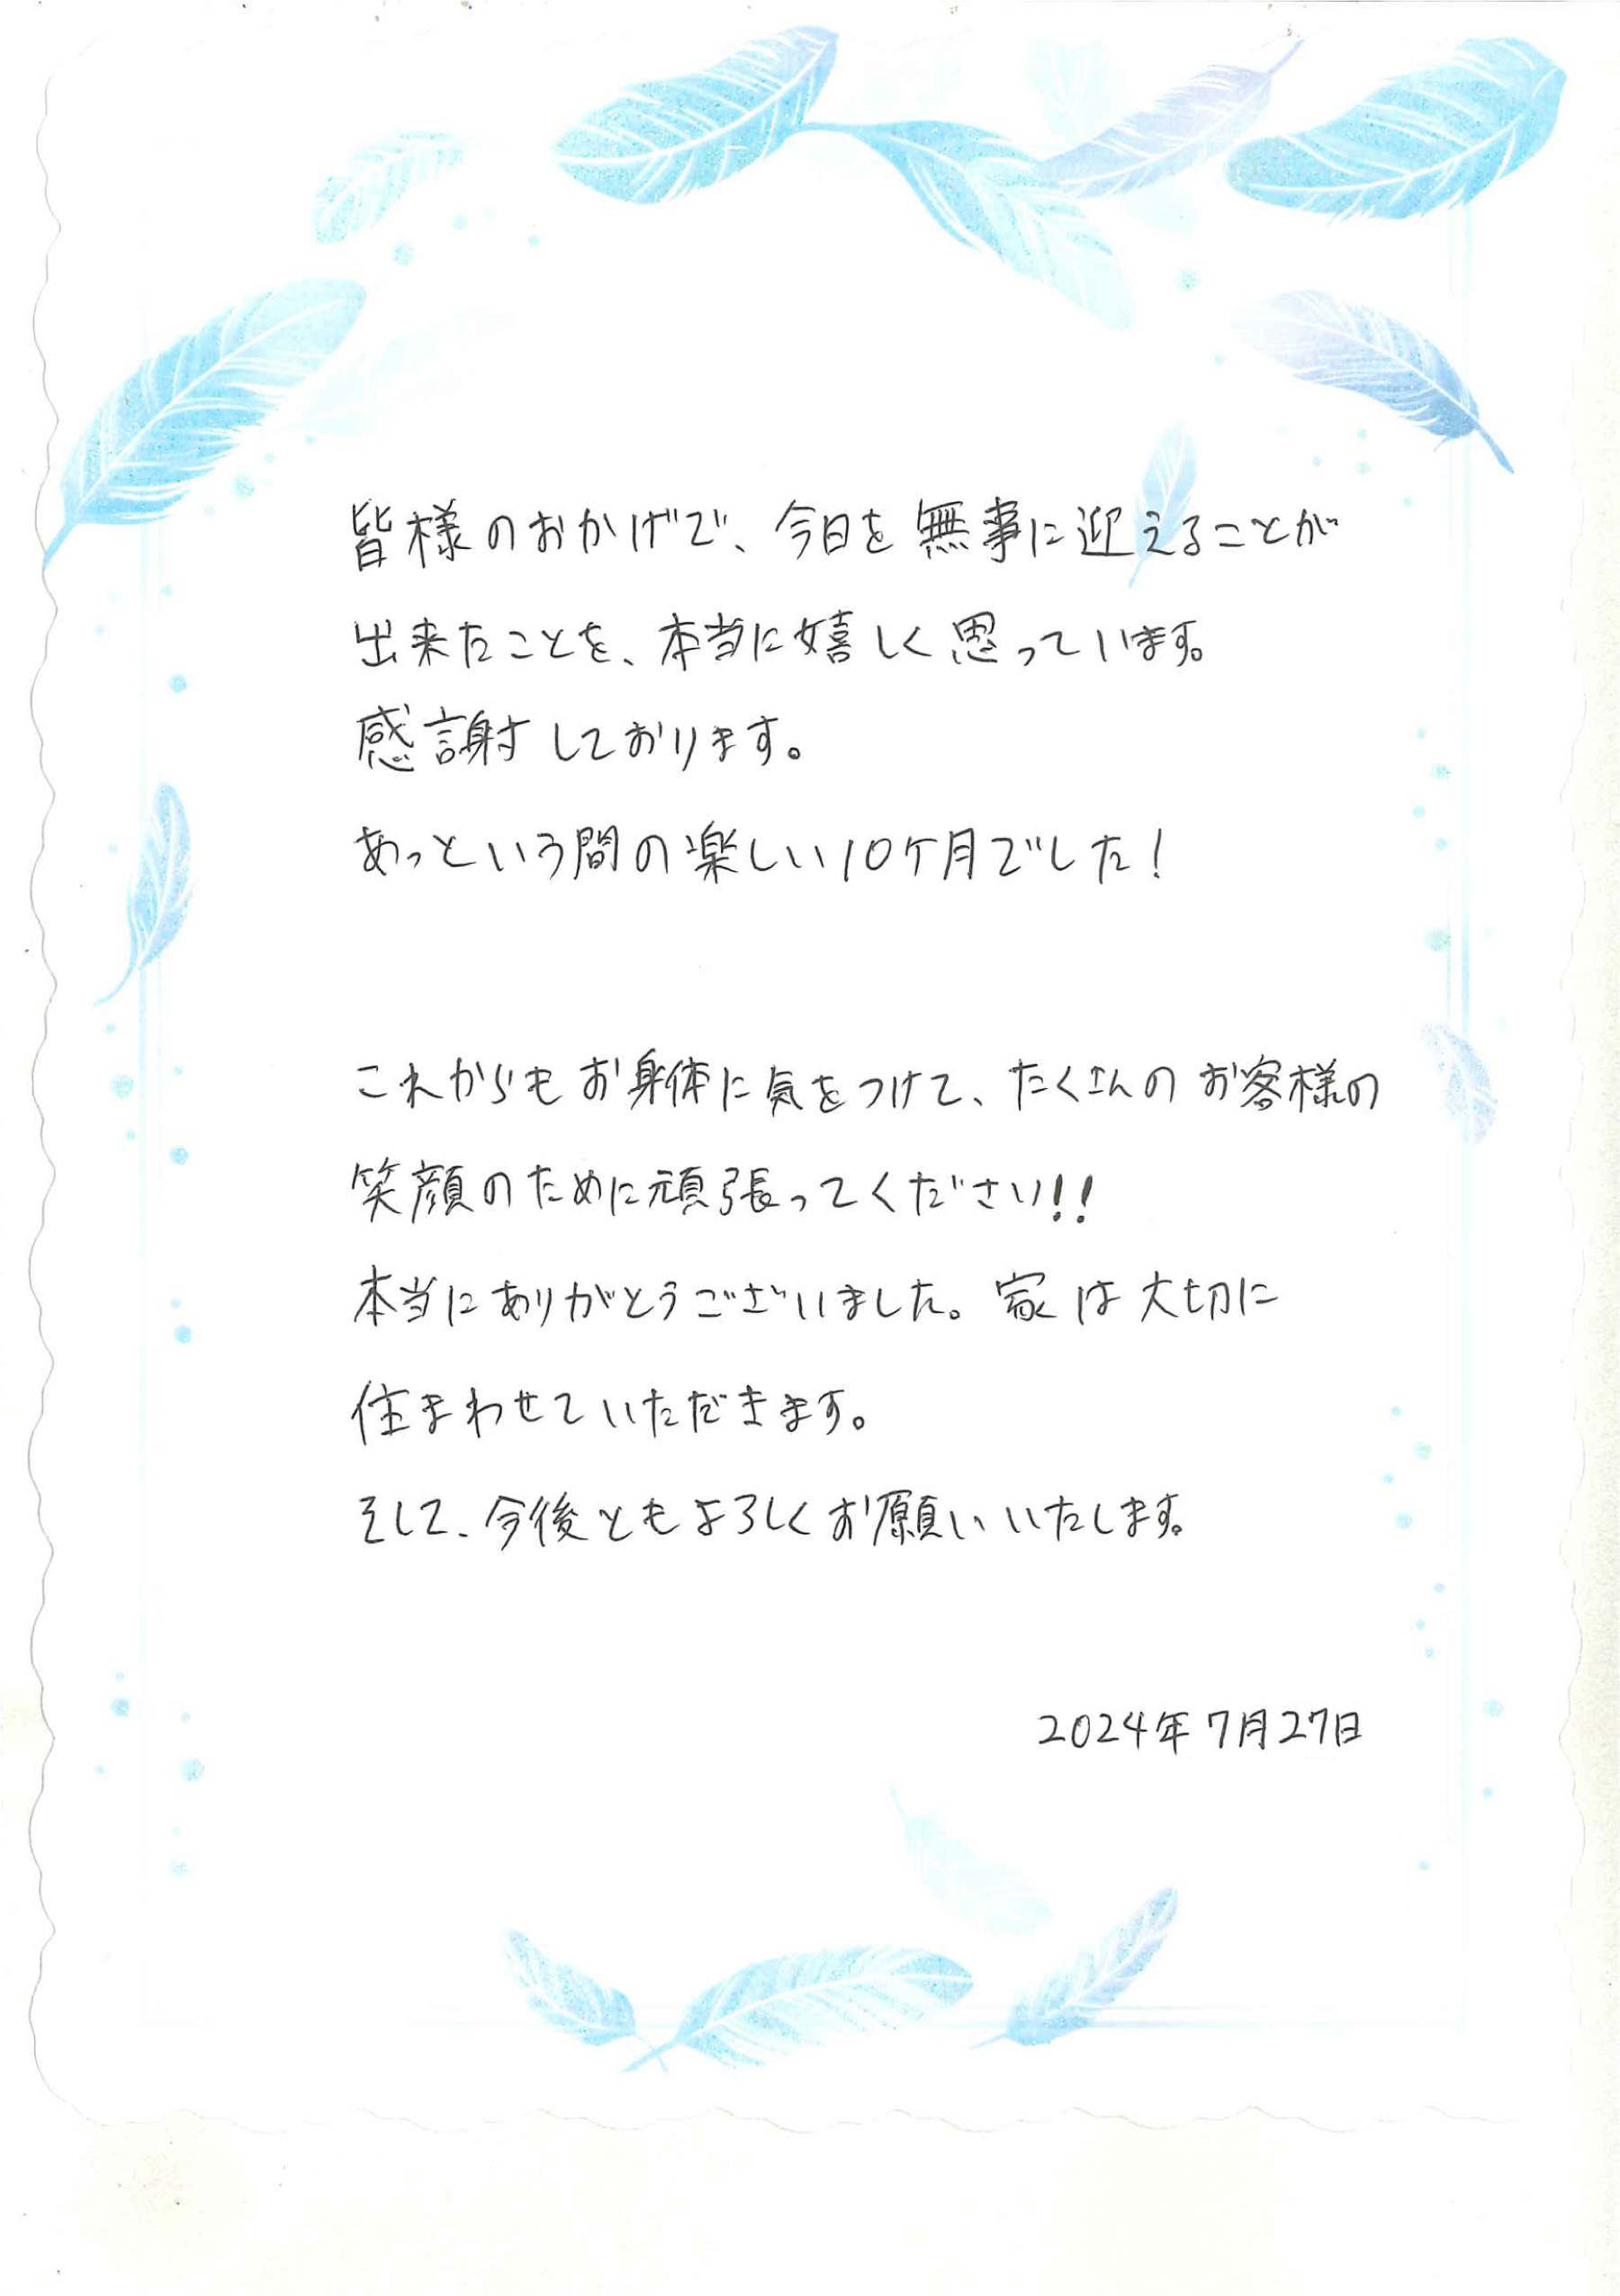 皆様のおかげで、今日を無事に迎えることが
出来たことを、本当に嬉しく思っています。
感謝しております。
あっという間の楽しい10ケ月でした！
これからもお身体に気をつけて、たくさんのお客様の
笑顔のために頑張ってください!!
本当にありがとうございました。家は大切に
住まわせていただきます。
そして、今後ともよろしくお願いいたします。
2024年7月27日